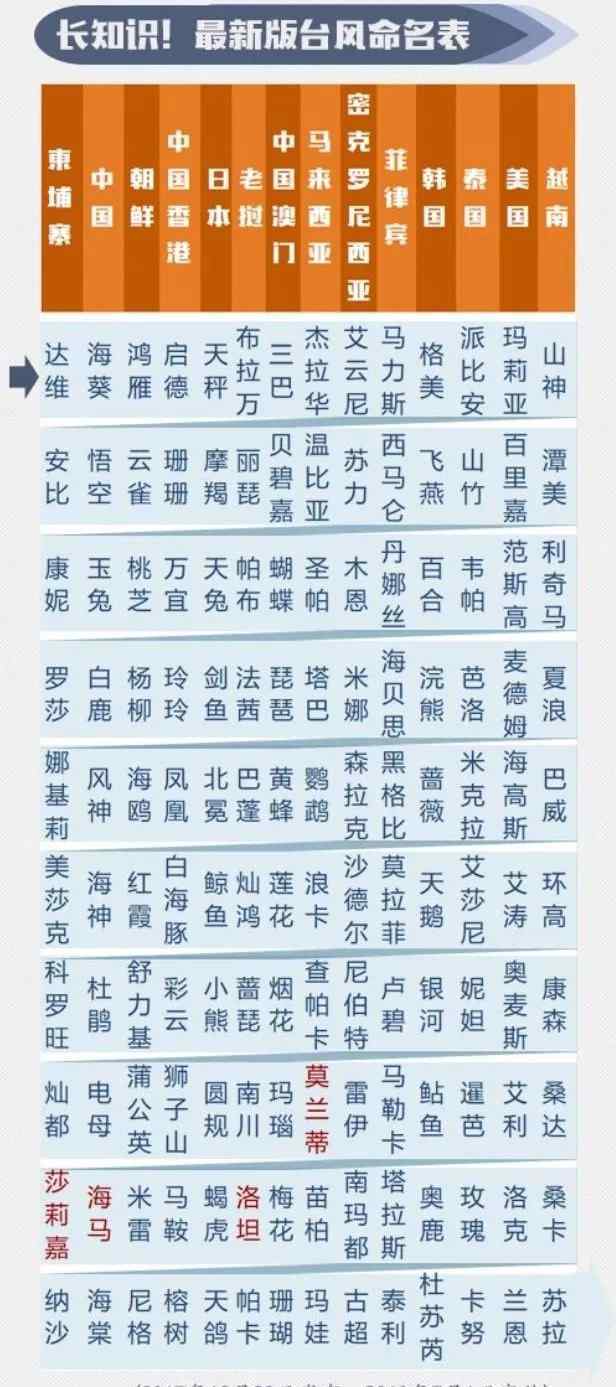 长知识！最新版台风命名表
柬埔寨 中国 朝鲜 中国香港 日本 老挝 中国澳门 马来西亚 密克罗尼西亚 菲律宾 韩国 泰国 美国 越南
达维 海葵 鸿雁 启德 天秤 布拉万 三巴 杰拉华 艾云尼 马力斯 格美 派比安 玛莉亚 山神
安比 悟空 云雀 珊珊 摩羯 丽琵 贝碧嘉 温比亚 苏力 西马仑 飞燕 山竹 百里嘉 潭美
康妮 玉兔 桃芝 万宜 天兔 帕布 蝴蝶 圣帕 木恩 丹娜丝 百合 韦帕 范斯高 利奇马
罗莎 白鹿 杨柳 玲玲 剑鱼 法茜 琵琶 塔巴 米娜 海贝思 浣熊 芭洛 麦德姆 夏浪
娜基莉 风神 海鸥 凤凰 北冕 巴蓬 黄蜂 鹦鹉 森拉克 黑格比 蔷薇 米克拉 海高斯 巴威
美莎克 海神 红霞 白海豚 鲸鱼 灿鸿 莲花 浪卡 沙德尔 莫拉菲 天鹅 艾莎尼 艾涛 环高
科罗旺 杜鹃 舒力基 彩云 小熊 蔷琵 烟花 查帕卡 尼伯特 卢碧 银河 妮妲 奥麦斯 康森
灿都 电母 蒲公英 狮子山 圆规 南川 玛瑙 莫兰蒂 雷伊 马勒卡 鲇鱼 暹芭 艾利 桑达
莎莉嘉 海马 米雷 马鞍 蝎虎 洛坦 梅花 苗柏 南玛都 塔拉斯 奥鹿 玫瑰 洛克 桑卡
纳沙 海棠 尼格 榕树 天鸽 帕卡 珊瑚 玛娃 古超 泰利 杜苏芮 卡努 兰恩 苏拉